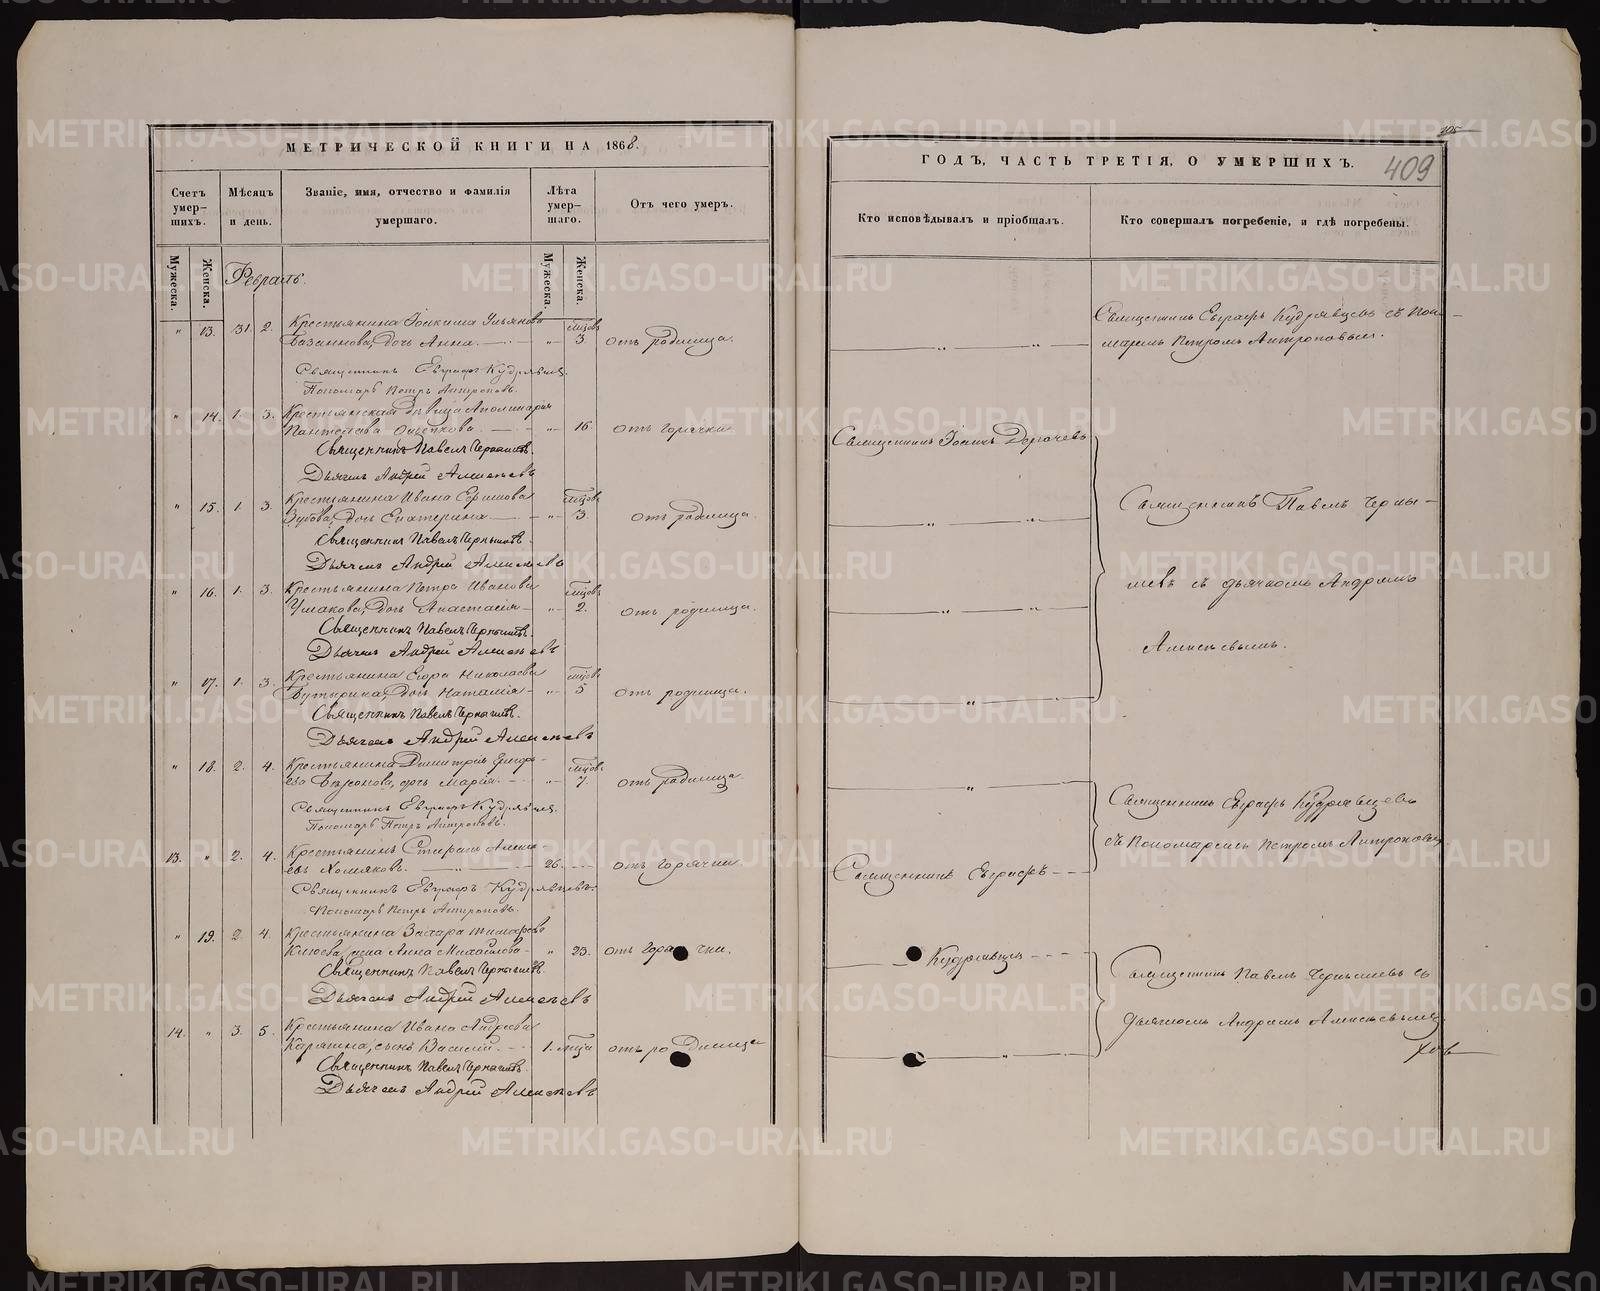 МЕТРИЧЕСКОЙ КНИГИ НА 1868.
Счетъ умер-шихъ.
Мѣсяцъ и день.
Званіе, имя, отчество и фамилія умершаго.
Лѣта умер-шаго.
Отъ чего умеръ.
Мужеска.
Женска.
Мужеска.
Женска.
Февраль.
" 13. 31. 2. Крестьянина Іоакима Ульянова мцовъ
дочь Анна. " 3 отъ родимца.
Священникъ Евграфъ Кудрявцев.
Пономарь Петръ Антроповъ.
" 14. 1. 3. Крестьянская дѣвица Аполинарія
" 16. отъ горячки
Священникъ Павелъ Чернышевъ.
Дьячекъ Андрей Алексѣевъ
" 15. 1. 3. Крестьянина Ивана Ефимова мцовъ
Зубова, дочь Екатерина " 3. отъ родимца.
Священникъ Павелъ Чернышевъ.
Дьячекъ Андрей Алексѣевъ
" 16. 1. 3. Крестьянина Петра Иванова мцовъ
Ушакова, дочь Анастасія " 2. отъ родимца.
Священникъ Павелъ Чернышевъ.
Дьячекъ Андрей Алексѣевъ
" 17. 1. 3. Крестьянина Егора Николаева мцовъ
Бутырина дочь Наталія " 5 отъ родимца.
Священникъ Павелъ Чернышевъ.
Дьячекъ Андрей Алексѣевъ
" 18. 2. 4. Крестьянина Димитрія мцовъ
дочь Марія. " 7. отъ родимца.
Священникъ Евграфъ Кудрявцев.
Пономарь Петръ Антроповъ.
13. " 2. 4. Крестьянинъ Стефанъ Алексѣ-
евъ Холмяковъ. 26. отъ горячки
Священникъ Евграфъ Кудрявцевъ.
Пономарь Петръ Антроповъ.
" 19. 2. 4. Крестьянина Захара
Клюева, жена Анна Михайлова " 23. отъ горячки.
Священникъ Павелъ Чернышевъ.
Дьячекъ Андрей Алексѣевъ
14. " 3. 5. Крестьянина Ивана Андреева
сынъ Василій. 1. мцъ отъ родимца
Священникъ Павелъ Чернышевъ.
Дьячекъ Андрей Алексѣевъ
ГОДЪ, ЧАСТЬ ТРЕТІЯ, О УМЕРШИХЪ.
409
Кто исповѣдывалъ и пріобщалъ.
Кто совершалъ погребеніе, и гдѣ погребены.
Священникъ Евграфъ Кудрявцевъ съ Поно-
маремъ Петромъ Антроповымъ.
Священникъ Іоаннъ Дерганчевъ
Священникъ Павелъ Черны-
шевъ съ дьячкомъ Андреемъ
Алексѣевымъ.
Священникъ Евграфъ Кудрявцевъ
съ Пономаремъ Петромъ Антроповым
Священникъ Евграфъ
Кудрявцевъ
Священникъ Павелъ Чернышевъ съ
дьячкомъ Андреемъ Алексѣевымъ.
METRIKI.GASO-URAL.RU